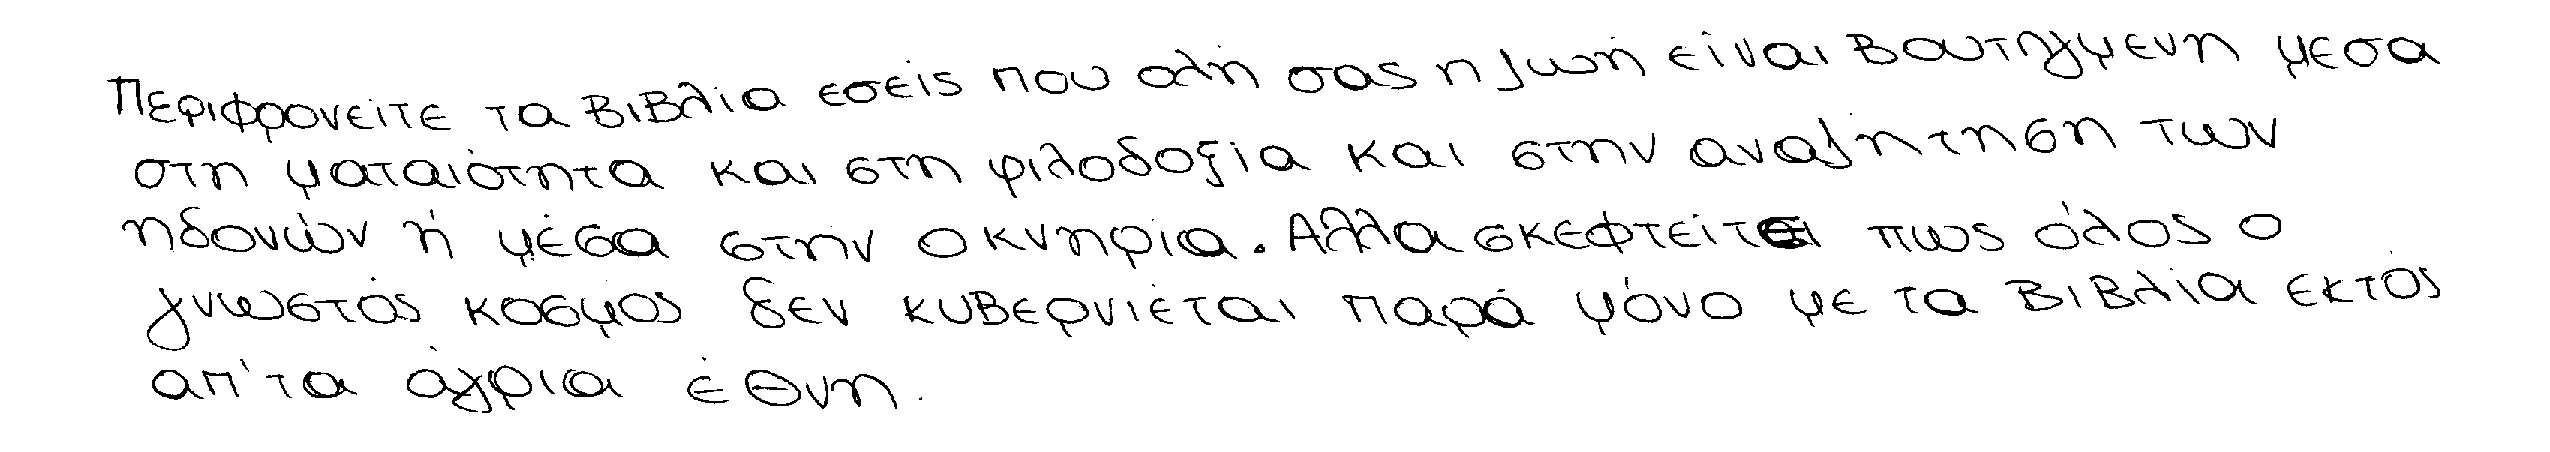 Περιφρονείτε τα βιβλία εσείς που ολη σας η ζωή είναι βουτηγμενη μεσα
στη ματαιότητα και στη φιλοδοξία και στην αναζητηση των
ηδονών ή μέσα στην οκνηρία. Αλλα σκεφτείτε πως όλος ο
γνωστός κοσμος δεν κυβερνιέται παρά μόνο με τα βιβλία εκτός
απ'τα άγρια έθνη.